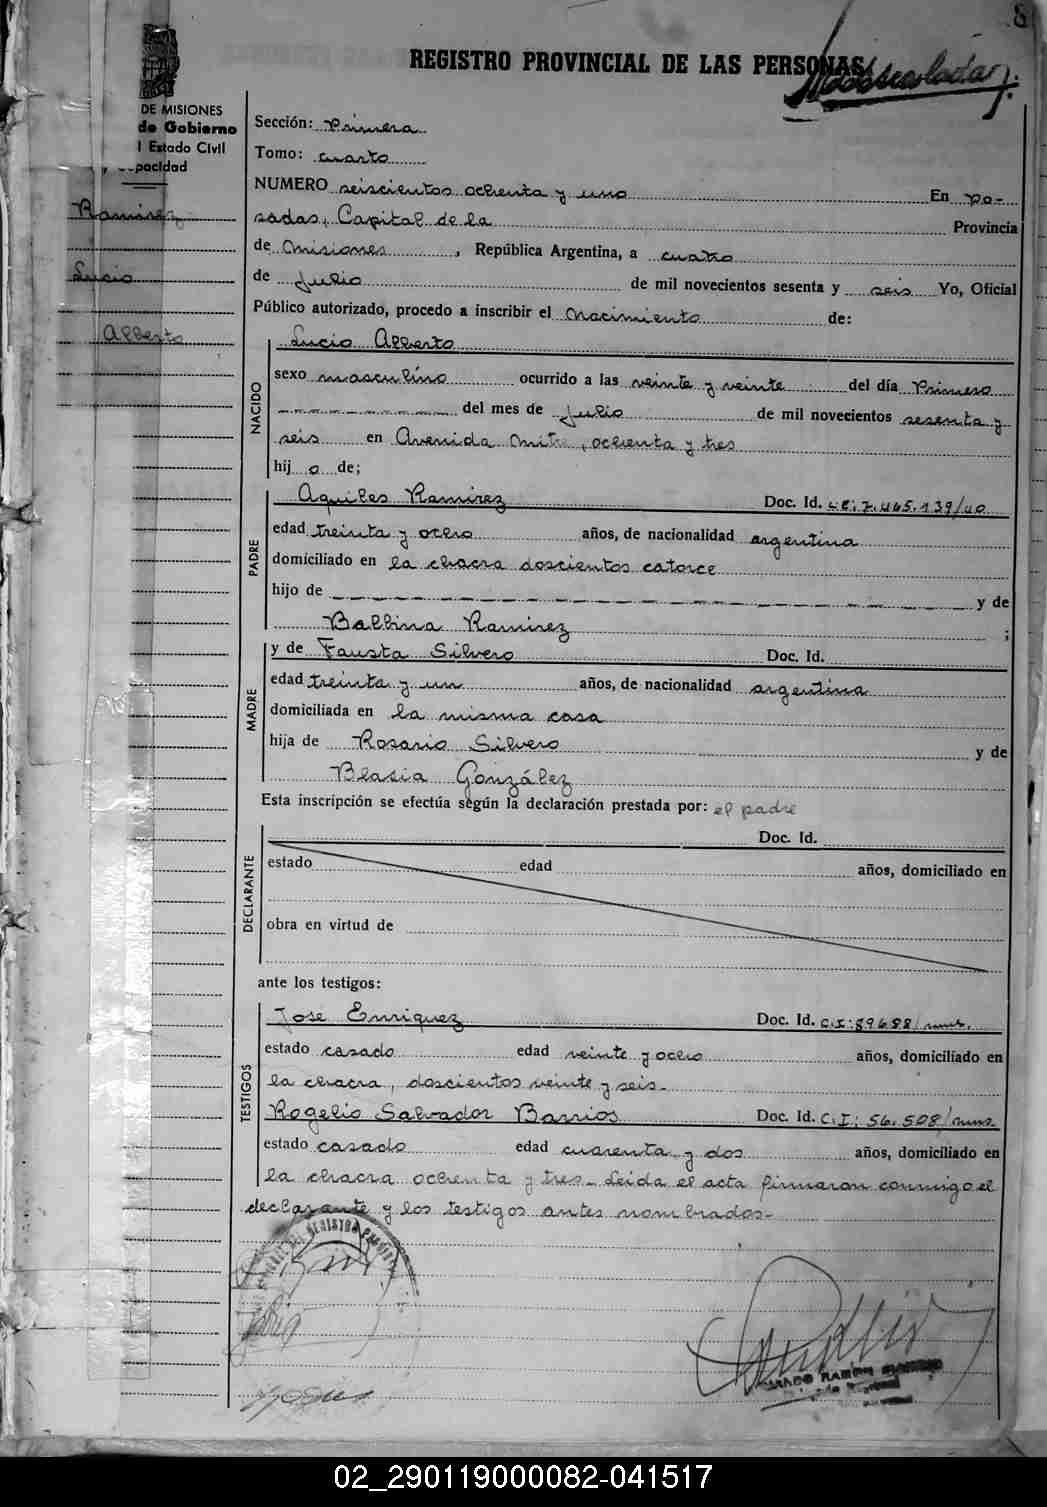 8
REGISTRO PROVINCIAL DE LAS PERSONAS
DE MISIONES
de Gobierno
l Estado Civil
pacidad
Ramirez
Lucio
Alberto
Sección: Primera
Tomo: cuarto
NUMERO seiscientos ochenta y uno En Po-
sadas, Capital de la Provincia
de Misiones, República Argentina, a cuatro
de Julio de mil novecientos sesenta y seis Yo, Oficial
Público autorizado, procedo a inscribir el Nacimiento de:
NACIDO
Lucio Alberto
sexo masculino ocurrido a las veinte y veinte del día Primero
del mes de Julio de mil novecientos sesenta y
seis en Avenida Mitre, ochenta y tres
hij o de;
PADRE
Aquiles Ramirez Doc. Id. L.E:7.465.139/40
edad treinta y ocho años, de nacionalidad argentina
domiciliado en la chacra doscientos catorce
hijo de y de
Balbina Ramirez ;
MADRE
y de Fausta Silvero Doc. Id.
edad treinta y un años, de nacionalidad argentina
domiciliada en la misma casa
hija de Rosario Silvero y de
Blasia González
Esta inscripción se efectúa según la declaración prestada por: el padre
DECLARANTE
Doc. Id.
estado edad años, domiciliado en
obra en virtud de
ante los testigos:
TESTIGOS
Jose Enriquez Doc. Id. C.I:89688/mnes.
estado casado edad veinte y ocho años, domiciliado en
la chacra, doscientos veinte y seis-
Rogelio Salvador Barrios Doc. Id. C.I: 56.508/mnes.
estado casado edad cuarenta y dos años, domiciliado en
la chacra ochenta y tres- Leida el acta firmaron conmigo el
declarante y los testigos antes nombrados-
02_290119000082-041517